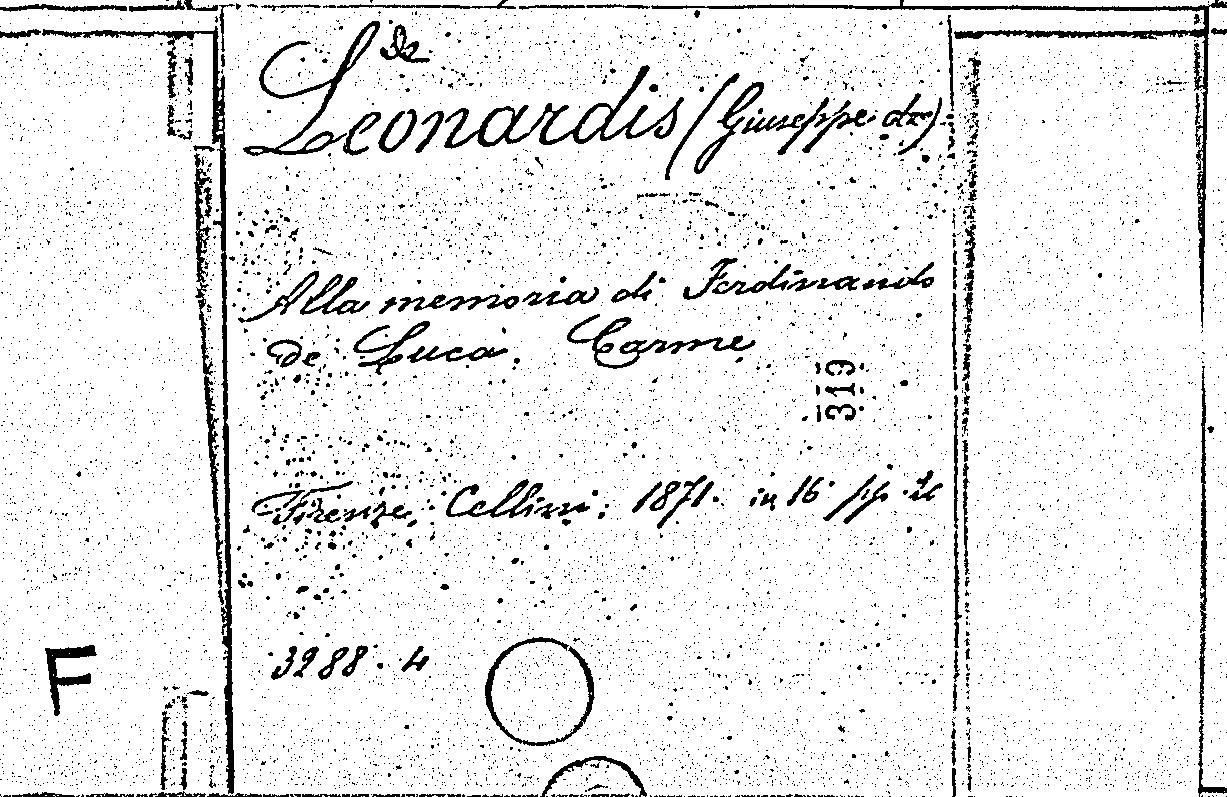 De
Leonardis (Giuseppe de)
Alla memoria di Ferdinando
de Luca. Carme
319
Firenze. Cellini. 1871. in 16° pp.
3288. 4
F